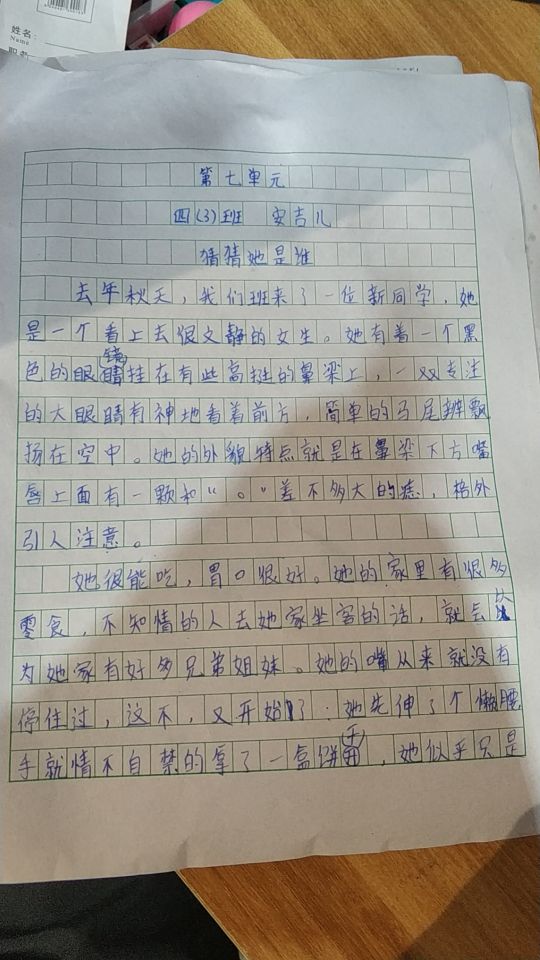 姓名:
Name
职务
第七单元
四(3)班 安吉儿
猜猜她是谁
去年秋天，我们班来了一位新同学，她
是一个看上去很文静的女生。她有着一个黑
色的眼镜挂在有些高挺的鼻梁上，一双专注
的大眼睛有神地看着前方，简单的马尾辫飘
扬在空中。她的外貌特点就是在鼻梁下方嘴
唇上面有一颗和“。”差不多大的痣，格外
引人注意。
她很能吃，胃口很好。她的家里有很多
零食，不知情的人去她家坐客的话，就会以
为她家有好多兄弟姐妹。她的嘴从来就没有
停住过，这不，又开始了：她先伸了个懒腰
手就情不自禁的拿了一盒饼干，她似乎只是